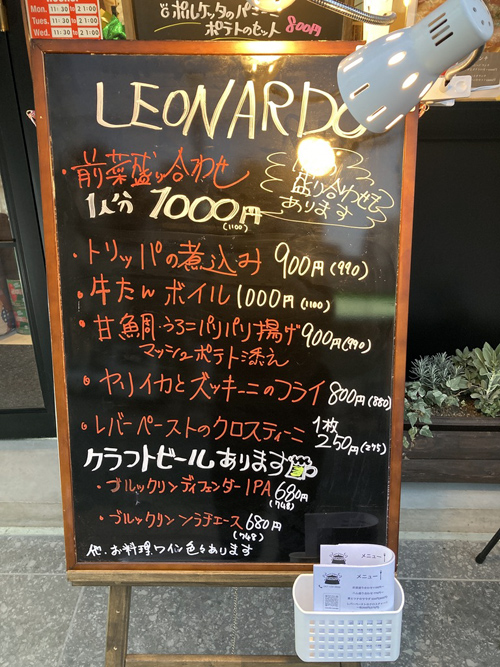 Mon. 11:30 to 21:00
Tues. 11:30 to 21:00
Wed. 11:30 to 21:00
ポルケッタのパニーニ
ポテトのセット 800円
LEONARDO
・前菜盛り合わせ
1人分 1000円
(1100)
盛り合わせも
あります
・トリッパの煮込み 900円(990)
・牛たんボイル 1000円(1100)
・甘鯛うろこパリパリ揚げ 900円(990)
マッシュポテト添え
・ヤリイカとズッキーニのフライ 800円(880)
・レバーペーストのクロスティーニ 1枚
250円(275)
クラフトビールあります
・ブルックリンディフェンダーIPA 680円
(748)
・ブルックリンソラチエース 680円
(748)
他、お料理ワイン色々あります
メニュー
メニュー